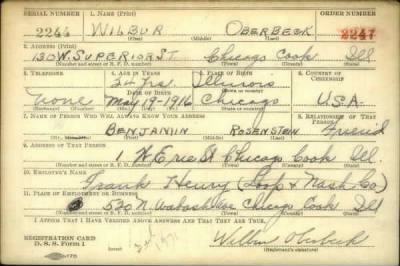 SERIAL NUMBER 1. NAME (Print) ORDER NUMBER
2244 WILBUR OBERBECK 2247
(First) (Middle) (Last)
2. ADDRESS (Print)
130 W. SUPERIOR ST Chicago Cook Ill
(Number and street or R. F. D. number) (Town) (County) (State)
3. TELEPHONE 4. AGE IN YEARS 5. PLACE OF BIRTH 6. COUNTRY OF CITIZENSHIP
24 Yrs. Illinois
DATE OF BIRTH
None May 19-1916 Chicago U.S.A.
7. NAME OF PERSON WHO WILL ALWAYS KNOW YOUR ADDRESS 8. RELATIONSHIP OF THAT PERSON
BENJAMIN ROSENSTEIN Friend
9. ADDRESS OF THAT PERSON
1 W Erie St Chicago Cook Ill.
(Number and street or R. F. D. number) (Town) (County) (State)
10. EMPLOYER'S NAME
Frank Henry (Loop & Nash Co)
11. PLACE OF EMPLOYMENT OR BUSINESS
520 N. Wabash Ave Chicago Cook Ill
(Number and street or R. F. D. number) (Town) (County) (State)
I AFFIRM THAT I HAVE VERIFIED ABOVE ANSWERS AND THAT THEY ARE TRUE.
REGISTRATION CARD
D. S. S. Form 1
Wilbur Oberbeck
(Registrant's signature)